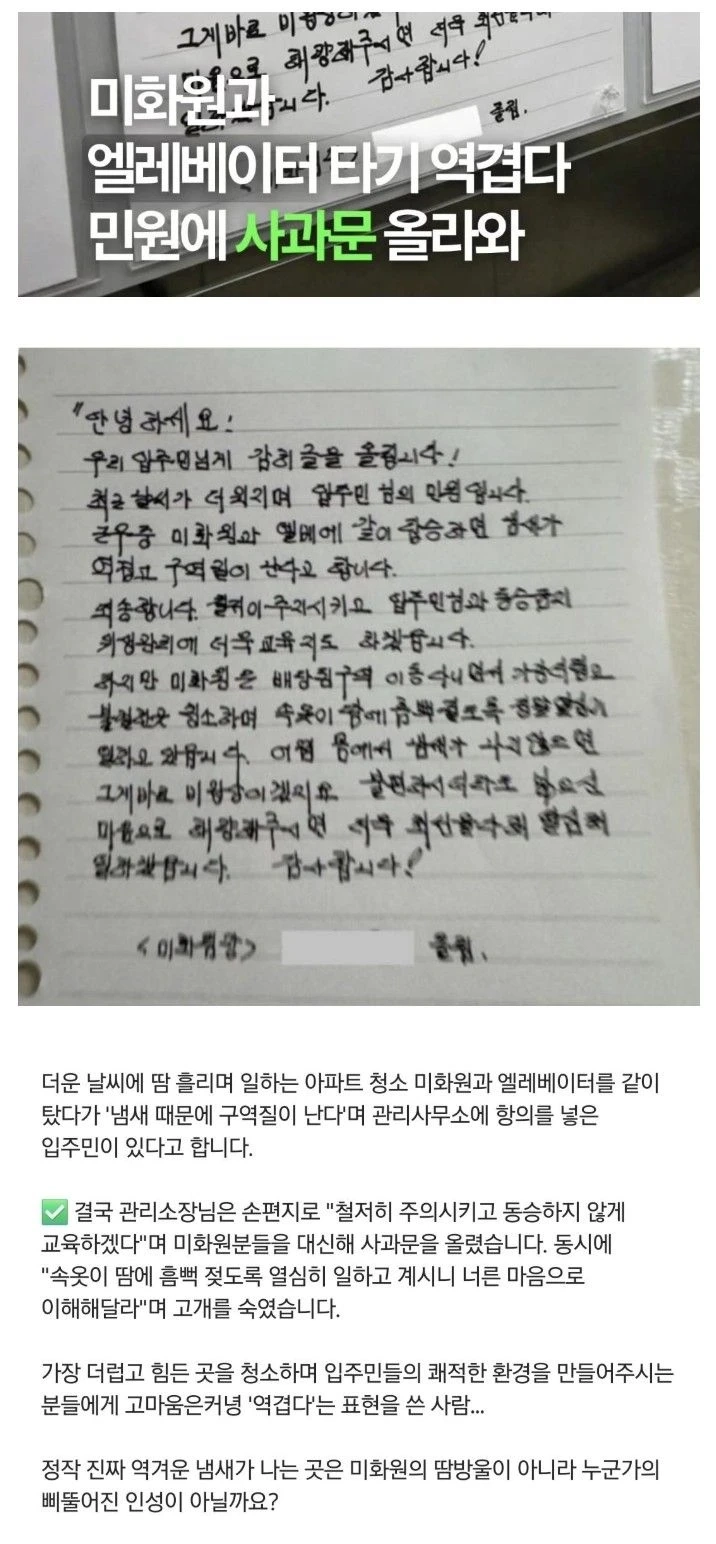 그게바로 미화원이
마음으로 해량해주시면 더욱 최선을다해
일하겠습니다. 감사합니다!
올림.
미화원과
엘레베이터 타기 역겹다
민원에 사과문 올라와
"안녕하세요!
우리 입주민님게 감히 글을 올림니다!
최근 날씨가 더워지며 입주민 님의 민원 입니다.
근무중 미화원과 엘베에 같이 탑승하면 냄새가
역겹고 구역질이 난다고 합니다.
죄송합니다. 철저이주의시키고 입주민님과 동승금지
위생관리에 더욱 교육지도 하겠습니다.
하지만 미화원은 배당된구역 이동다니면서 가장더럽고
불결한곳 청소하며 속옷이 땀에 흠뻑 젖도록 정말 열심히
일하고 있습니다. 어찌 몸에서 냄새가 나지않으면
그게바로 비정상이겠지요 불편하시더라도 넓으신
마음으로 해량해주시면 더욱 최선을다해
일하겠습니다. 감사합니다!
<미화팀장> 올림.
더운 날씨에 땀 흘리며 일하는 아파트 청소 미화원과 엘레베이터를 같이
탔다가 '냄새 때문에 구역질이 난다'며 관리사무소에 항의를 넣은
입주민이 있다고 합니다.
✅ 결국 관리소장님은 손편지로 "철저히 주의시키고 동승하지 않게
교육하겠다"며 미화원분들을 대신해 사과문을 올렸습니다. 동시에
"속옷이 땀에 흠뻑 젖도록 열심히 일하고 계시니 너른 마음으로
이해해달라"며 고개를 숙였습니다.
가장 더럽고 힘든 곳을 청소하며 입주민들의 쾌적한 환경을 만들어주시는
분들에게 고마움은커녕 '역겹다'는 표현을 쓴 사람...
정작 진짜 역겨운 냄새가 나는 곳은 미화원의 땀방울이 아니라 누군가의
삐뚤어진 인성이 아닐까요?